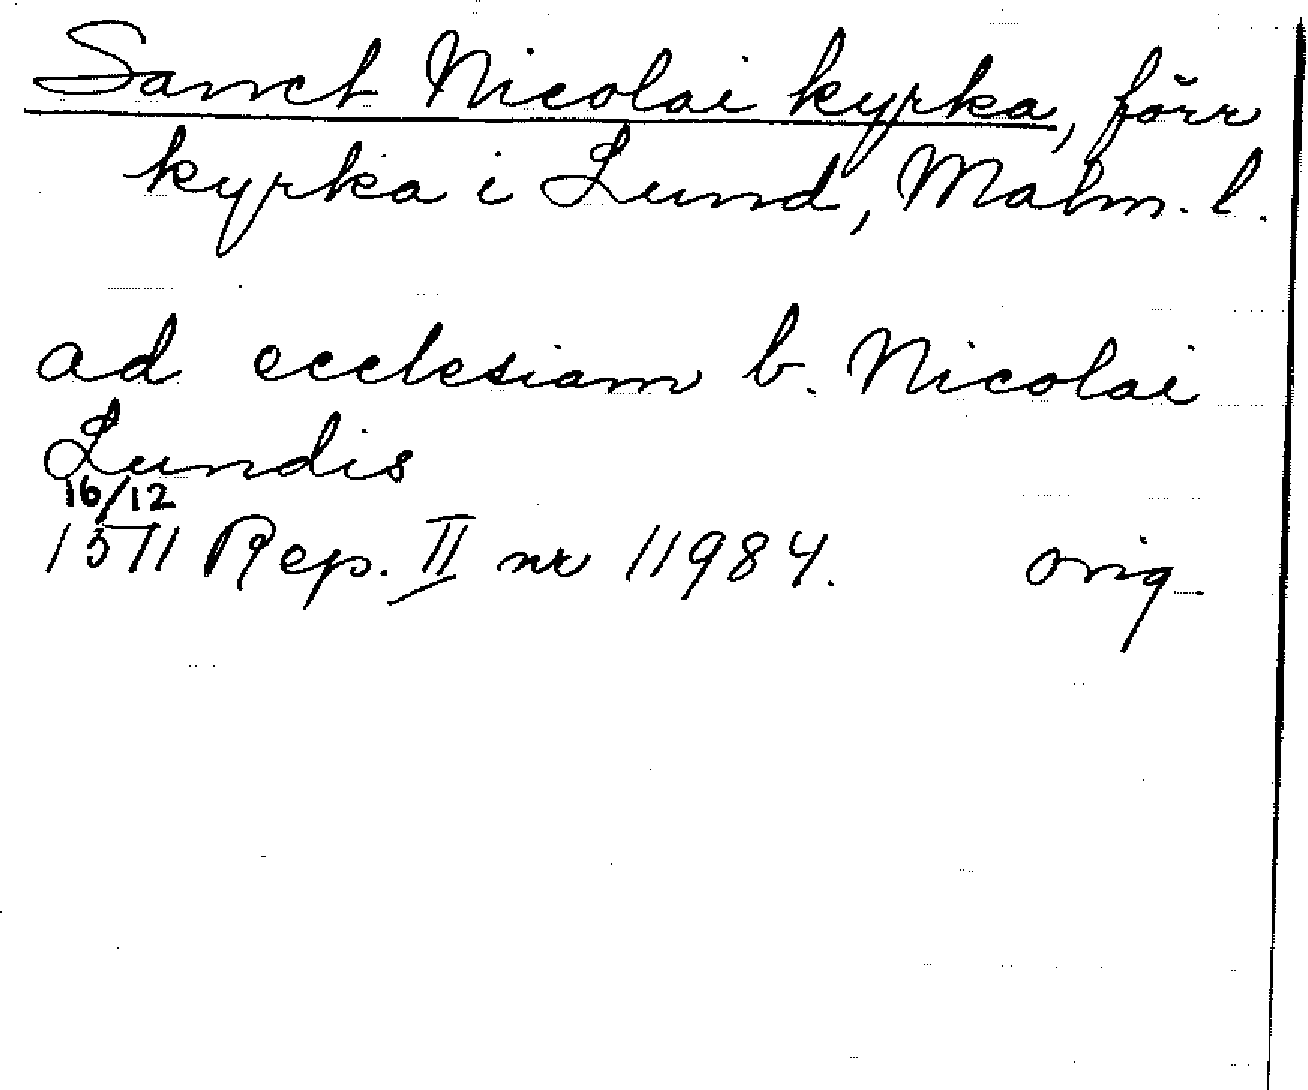 Sanct Nicolai kyrka, förr
kyrka i Lund, Malm. l.
ad ecclesiam b. Nicolai
Lundis
16/12
1511 Rep. II nr 11984. orig